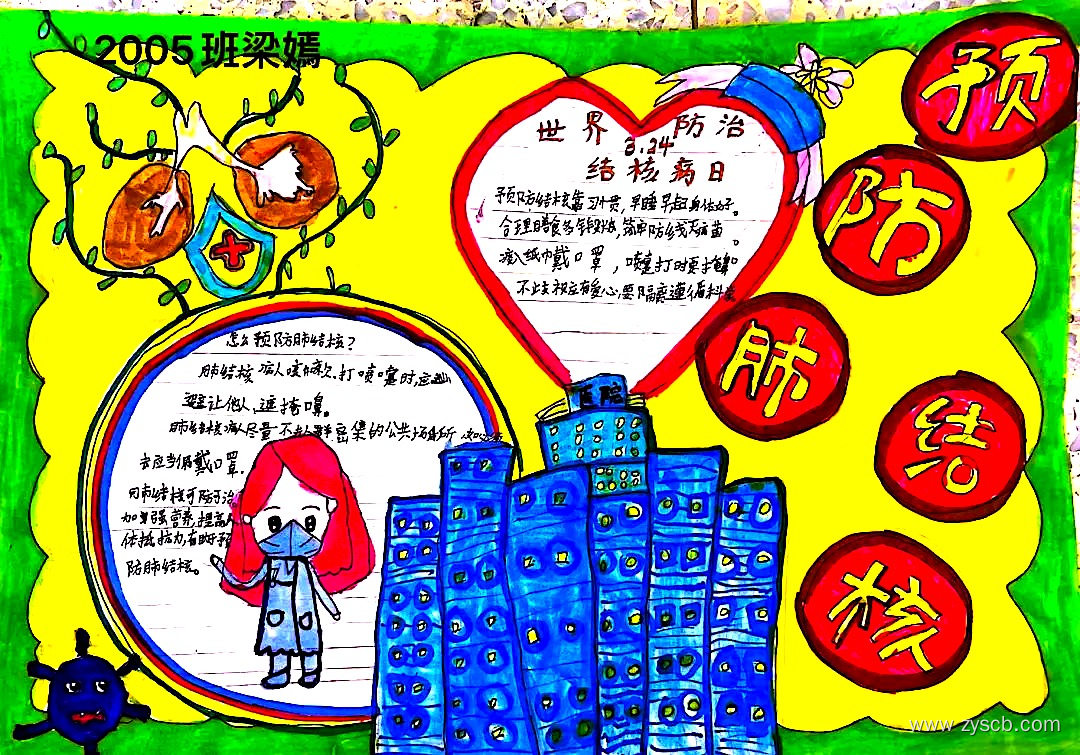 2005班梁嫣
预
防
肺
结
核
世界 防治
3.24
结核病日
预防结核靠习惯,早睡早起身体好。
合理膳食多锻炼,筑牢防线灭病菌。
戴口罩,喷嚏打时要掩鼻
要隔离遵循科
医院
怎么预防肺结核?
肺结核病人咳嗽、打喷嚏时,应
避让他人、遮掩口鼻。
肺结核病人尽量不去人群密集的公共场所
去应当佩戴口罩.
肺结核可防可治
加强营养,提高人
体抵抗力,有助于预
防肺结核。
www.zyscb.com